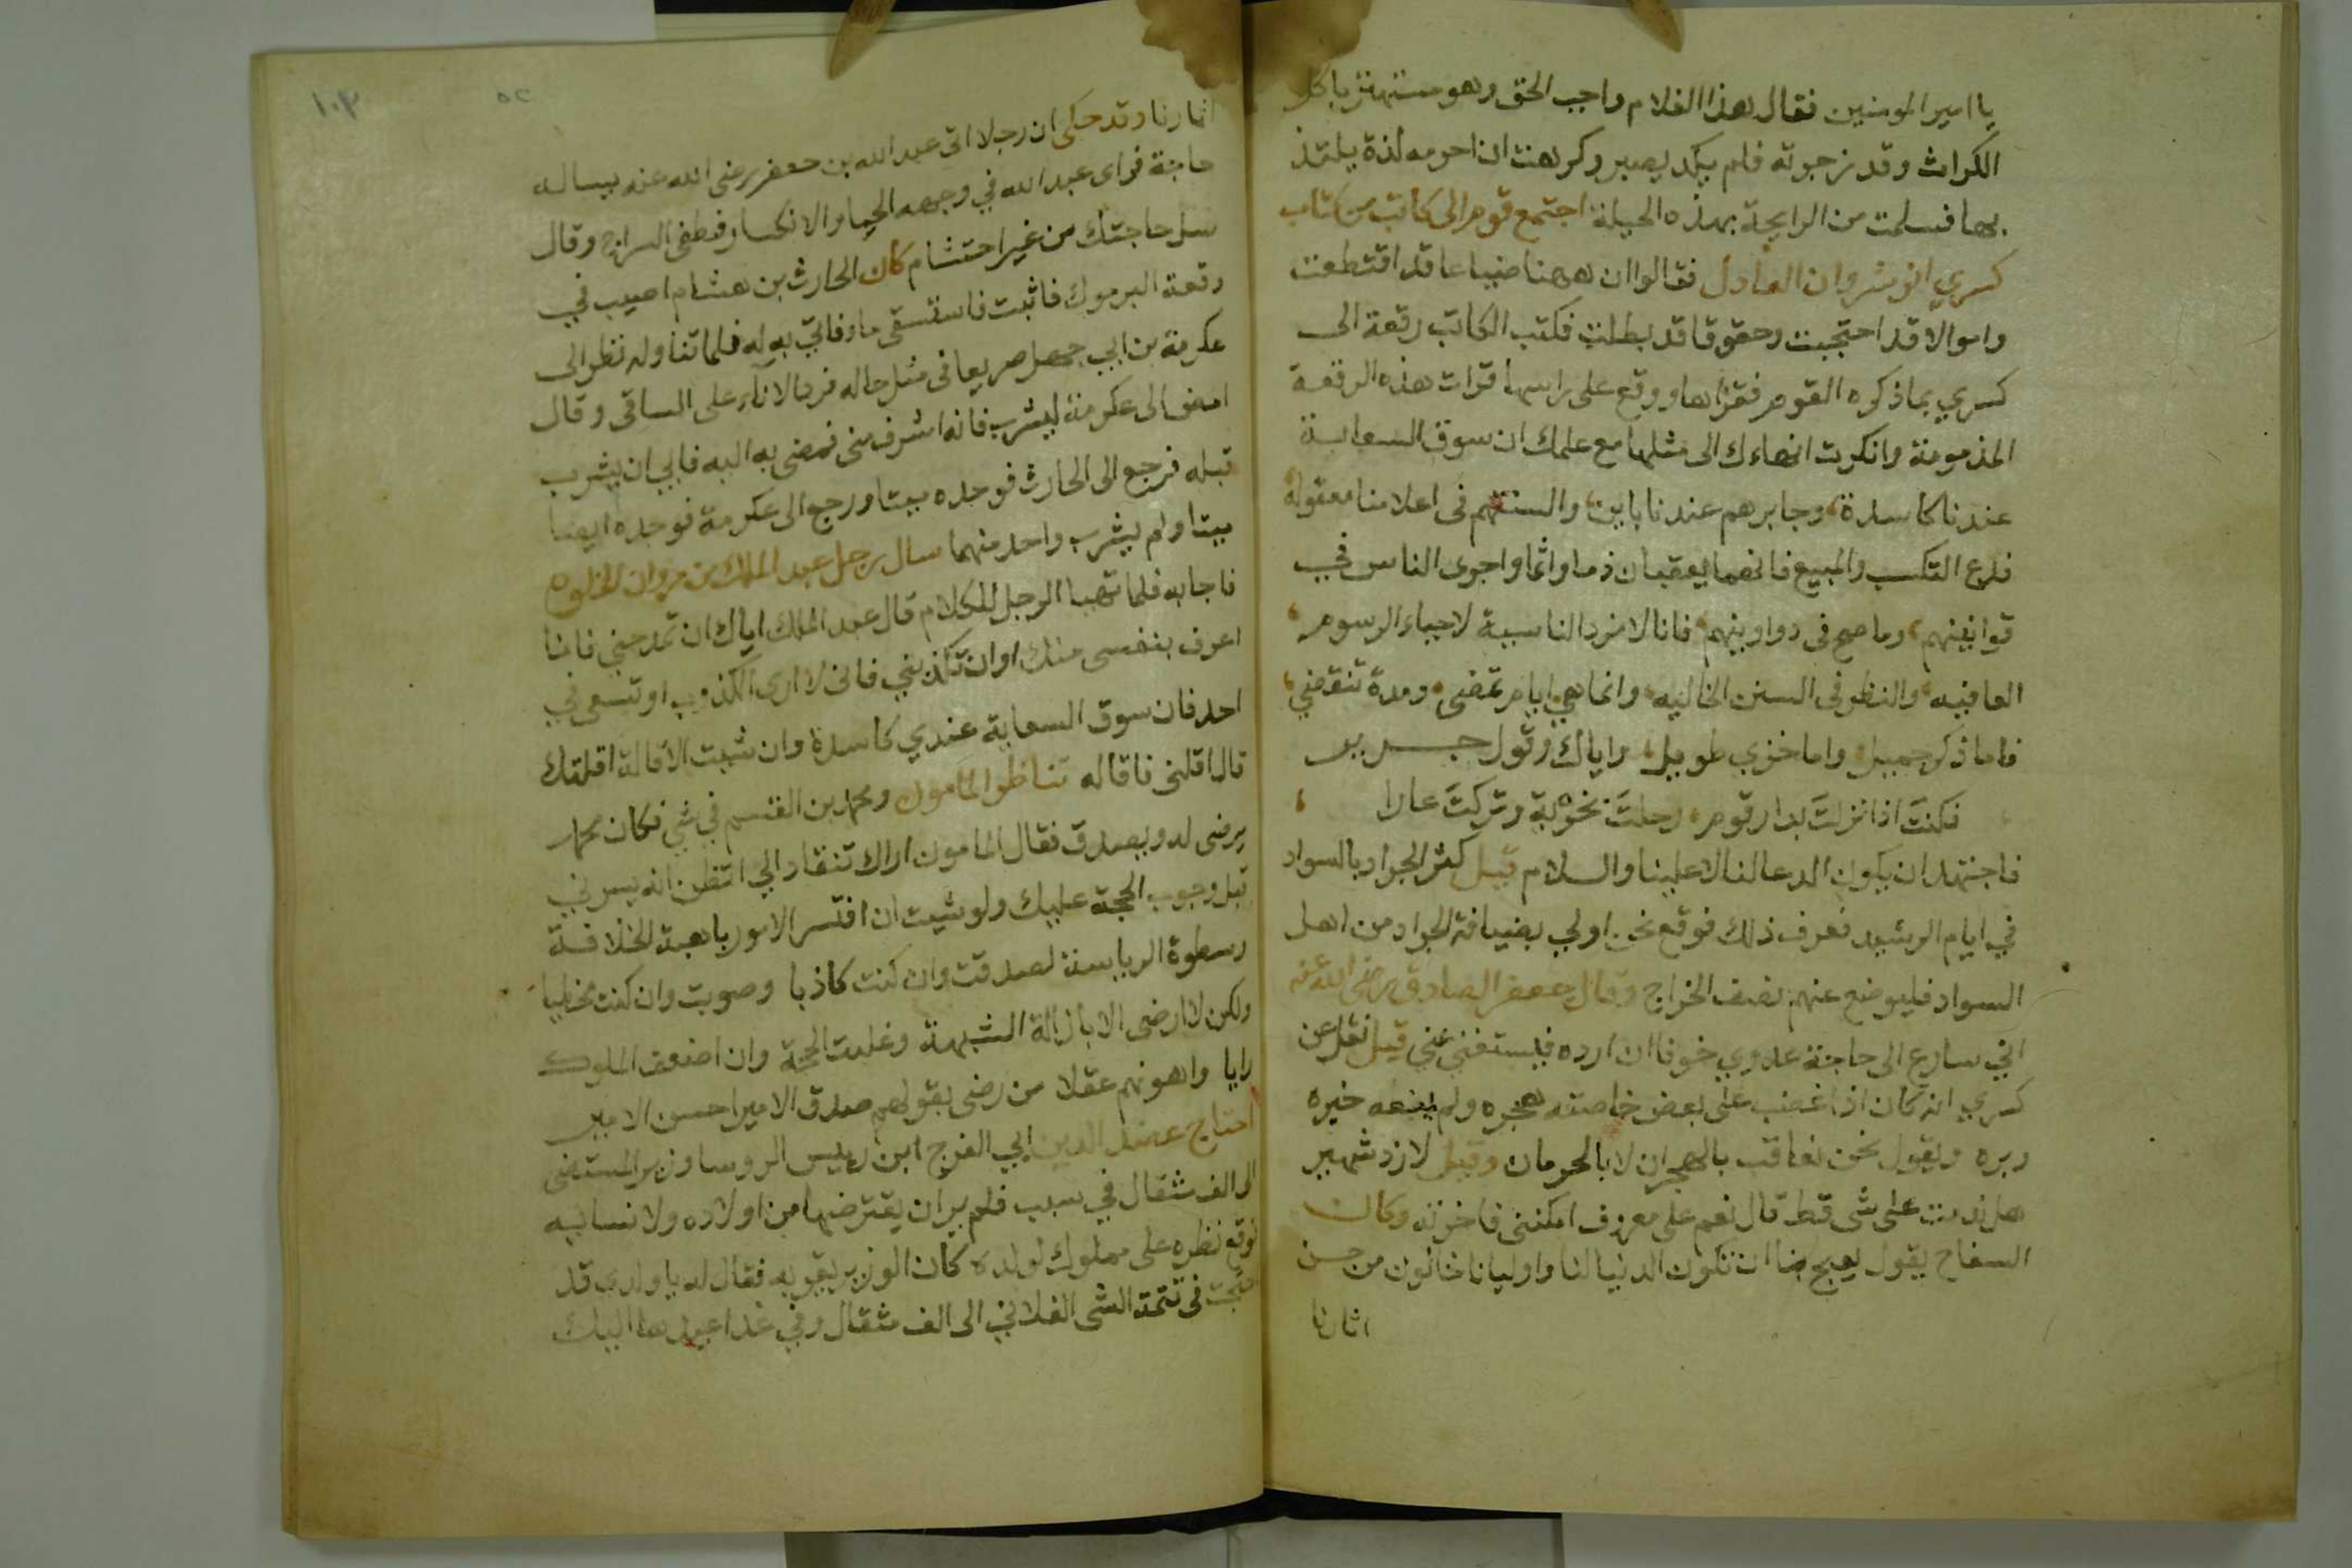 يا امير المومنين فقال هذا الغلام واجب الحق وهو مستهتر باكل
الكراث وقد زجرته فلم يكد يصبر وكرهت ان احرمه لذة يلتذ
بها فسلمت من الرايحة بهذه الحيلة اجتمع قوم الى كاتب من كتاب
كسري انوشروان العادل فقالوا ان ههنا ضياعا قد اقتطعت
واموالا قد احتجبت وحقوقا قد بطلت فكتب الكاتب رقعة الى
كسري بما ذكره القوم فقراها ووقع على راسها قرات هذه الرقعة
المذمومة وانكرت انهاءك الى مثلها مع علمك ان سوق السعاية
عندنا كاسدة وجابرهم عندنا باين والسنتهم فى اعلامنا معقولة
فدع التكسب والمبيع فانهما يعقبان ذما واثما واجرى الناس في
قوانينهم وما صح فى دواوينهم فانا لا نرد الناسية لاحياء الرسوم
العافيه والنظر فى السنن الخاليه وانما هي ايام تمضى ومدة تنقضي
فاما ذكر جميل واما خزي طويل واياك وقول جرير
فكنتَ اذا نزلتَ بدار قوم رحلتَ بخزية وتركتَ عارا
فاجتهد ان يكون الدعا لنا لا علينا والسلام قيل كثر الجراد بالسواد
في ايام الرشيد فعرف ذلك فوقع نحن اولي بضيافة الجراد من اهل
السواد فليوضع عنهم نصف الخراج وقال جعفر الصادق رضى الله عنه
اني سارع الى حاجة عدوي خوفا ان ارده فيستغني عني قيل نقل عن
كسري انه كان اذا غضب على بعض خاصته هجره ولم يمنعه خيره
وبره ويقول نحن نعاقب بالهجران لا بالحرمان وقيل لازدشهير
هل ندمت على شى قط قال نعم على معروف امكننى فاخرته وكان
السفاح يقول يعبح بنا ان تكون الدنيا لنا واوليانا خالون من حسن
اثارنا
١٠٣
٥٢
اثارنا وقد حكى ان رجلا اتى عبد الله بن جعفر رضى الله عنه يساله
حاجة فراى عبد الله في وجهه الحيا والانكسار فطفى السراج وقال
سل حاجتك من غير احتشام كان الحارث بن هشام اصيب في
وقعة اليرموك فاثبت فاستسقى ما فاتي به له فلما تناوله نظر الى
عكرمة بن ابي جهل صريعا فى مثل حاله فرد الاناء على الساقى وقال
امض الى عكرمة ليشرب فانه اشرف منى فمضى به اليه فابي ان يشرب
قبله فرجع الى الحارث فوجده ميتا ورجع الى عكرمة فوجده ايضا
ميتا ولم يشرب واحد منهما سال رجل عبد الملك بن مروان الخلوه
فاجابه فلما تهيا الرجل للكلام قال عبد الملك اياك ان تمدحني فانا
اعرف بنفسى منك او ان تكذبني فانى لا ارى الكذوب او تسعى في
احد فان سوق السعاية عندي كاسدة وان شيت الاقالة اقلتك
قال اقلنى فاقاله تناظر المامون ومحمد بن القسم في شي فكان محمد
يرضى له ويصدق فقال المامون اراك تنقاد الي اتظن انه يسرني
قبل وجوب الحجة عليك ولو شيت ان اقتسر الامور باهبة الخلافة
وسطوة الرياسة لصدقت وان كنت كاذبا وصوبت وان كنت مخطيا
ولكن لا ارضى الا بازالة الشبهة وغلبت الحجة وان اضعف الملوك
رايا واهونهم عقلا من رضى بقولهم صدق الامير احسن الامير
احتاج عضد الدين ابي الفرج ابن رييس الروسا وزير المستضى
الى الف مثقال في سبب فلم ير ان يقترضها من اولاده ولا نسايه
فوقع نظره على مملوك لولده كان الوزير يقربه فقال له يا ولدى قد
فى تتمة الشى الفلاني الى الف مثقال وفي غدا عيدها اليك